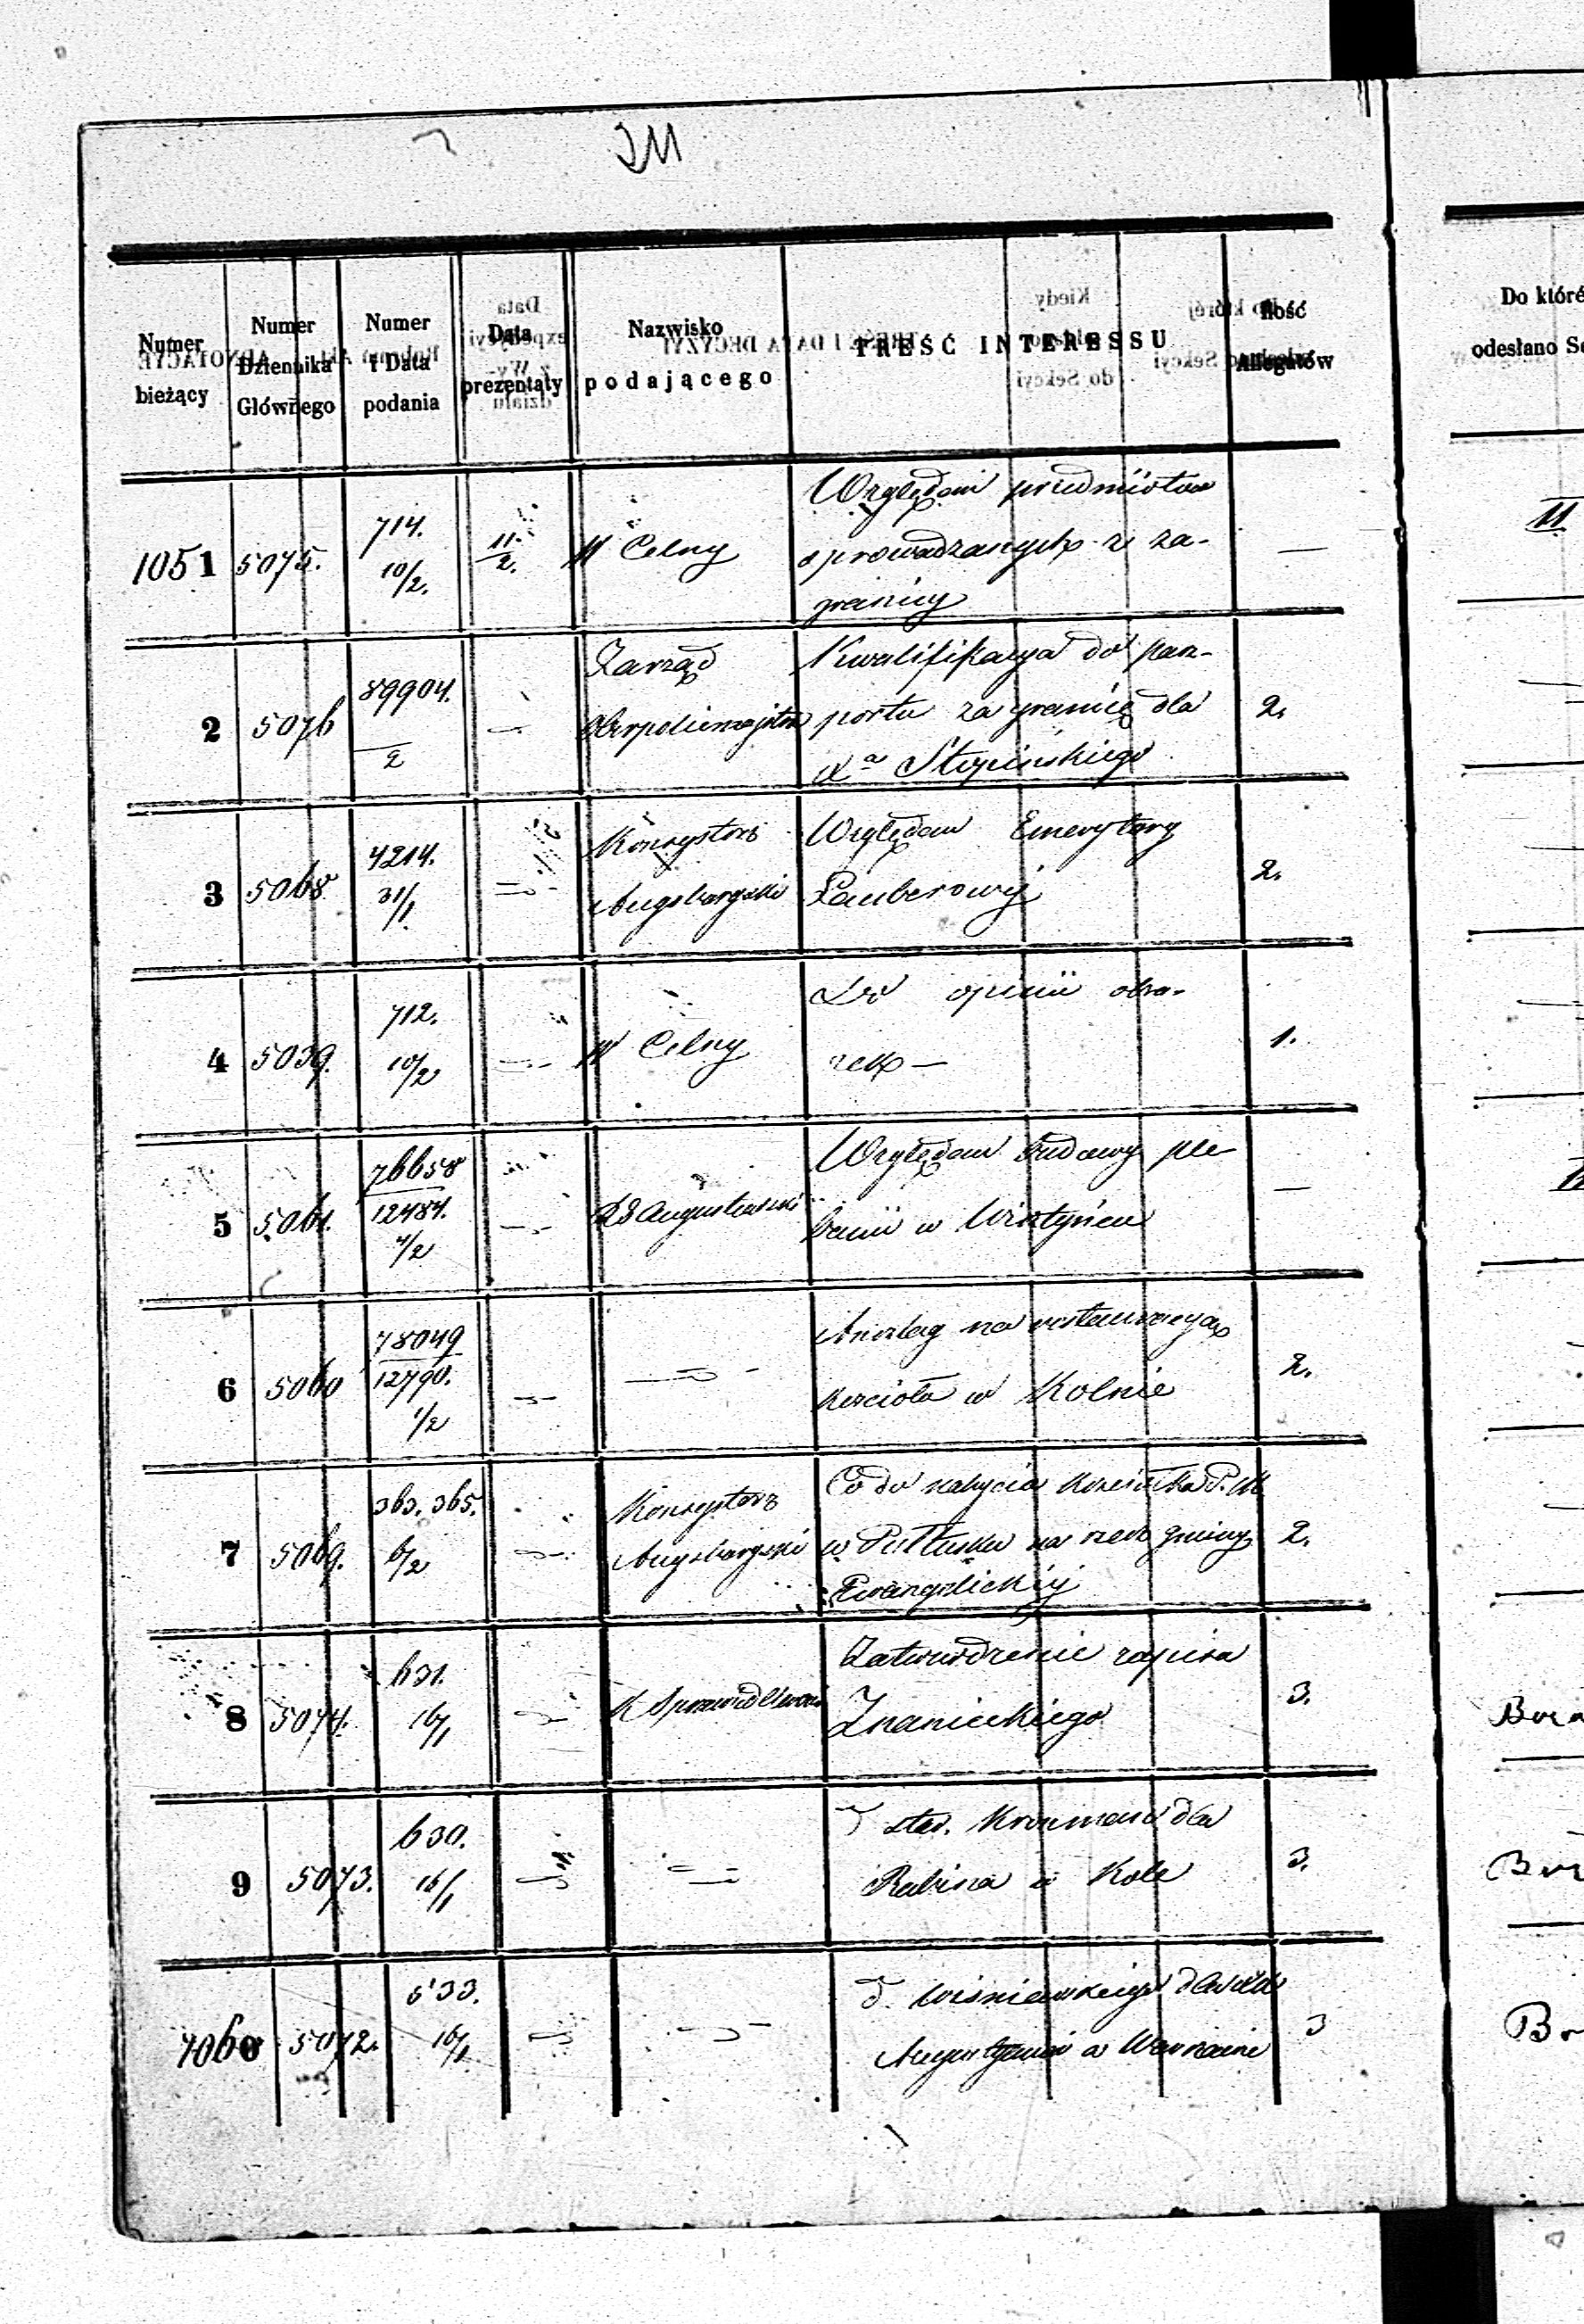 Numer bieżący
Numer Dziennika Głównego
Numer i Data podania
Data prezentaty
Nazwisko podającego
TREŚĆ INTERESSU
Ilość Allegatów
Do które
odesłano Se
1051 5075. 714. 10/2. 11/2. W Celny
Względem przedmiotów
sprowadzanych z za-
granicy —
2 5076 89904. /2 Zarząd
Oberpolicmajstra
Kwalifikacya do pasz-
portu za granicę dla
Xa Stypińskiego 2.
3 5068. 4214. 31/1 Konsystorz
Augsburgski
Względem Emerytury
Lauberowej 2.
4 5039. 712. 10/2 W Celny
Do opinii obra-
zek — 1.
5 5061. 76658
12484. 4/2 RG Augustowski
Względem budowy ple-
banii w Wisztyńcu —
6 5060 78049
12790. 1/2
Anszlag na restauracyą
kościoła w Kolnie 2.
7 5069. 363. 365. 6/2 Konsystorz
Augsburgski
Co do nabycia kościołka P. M.
w Pułtusku na rzecz gminy
Ewangelickiej 2.
8 5074. 631. 16/1 K Sprawiedliwości
Zatwierdzenie zapisu
Znanieckiego 3.
9 5073. 630. 16/1
Rabina w Kole 3.
1060 5072. 633. 16/1
d. Wiśniewskiego dla XX
Augustyanów w Warszawie 3